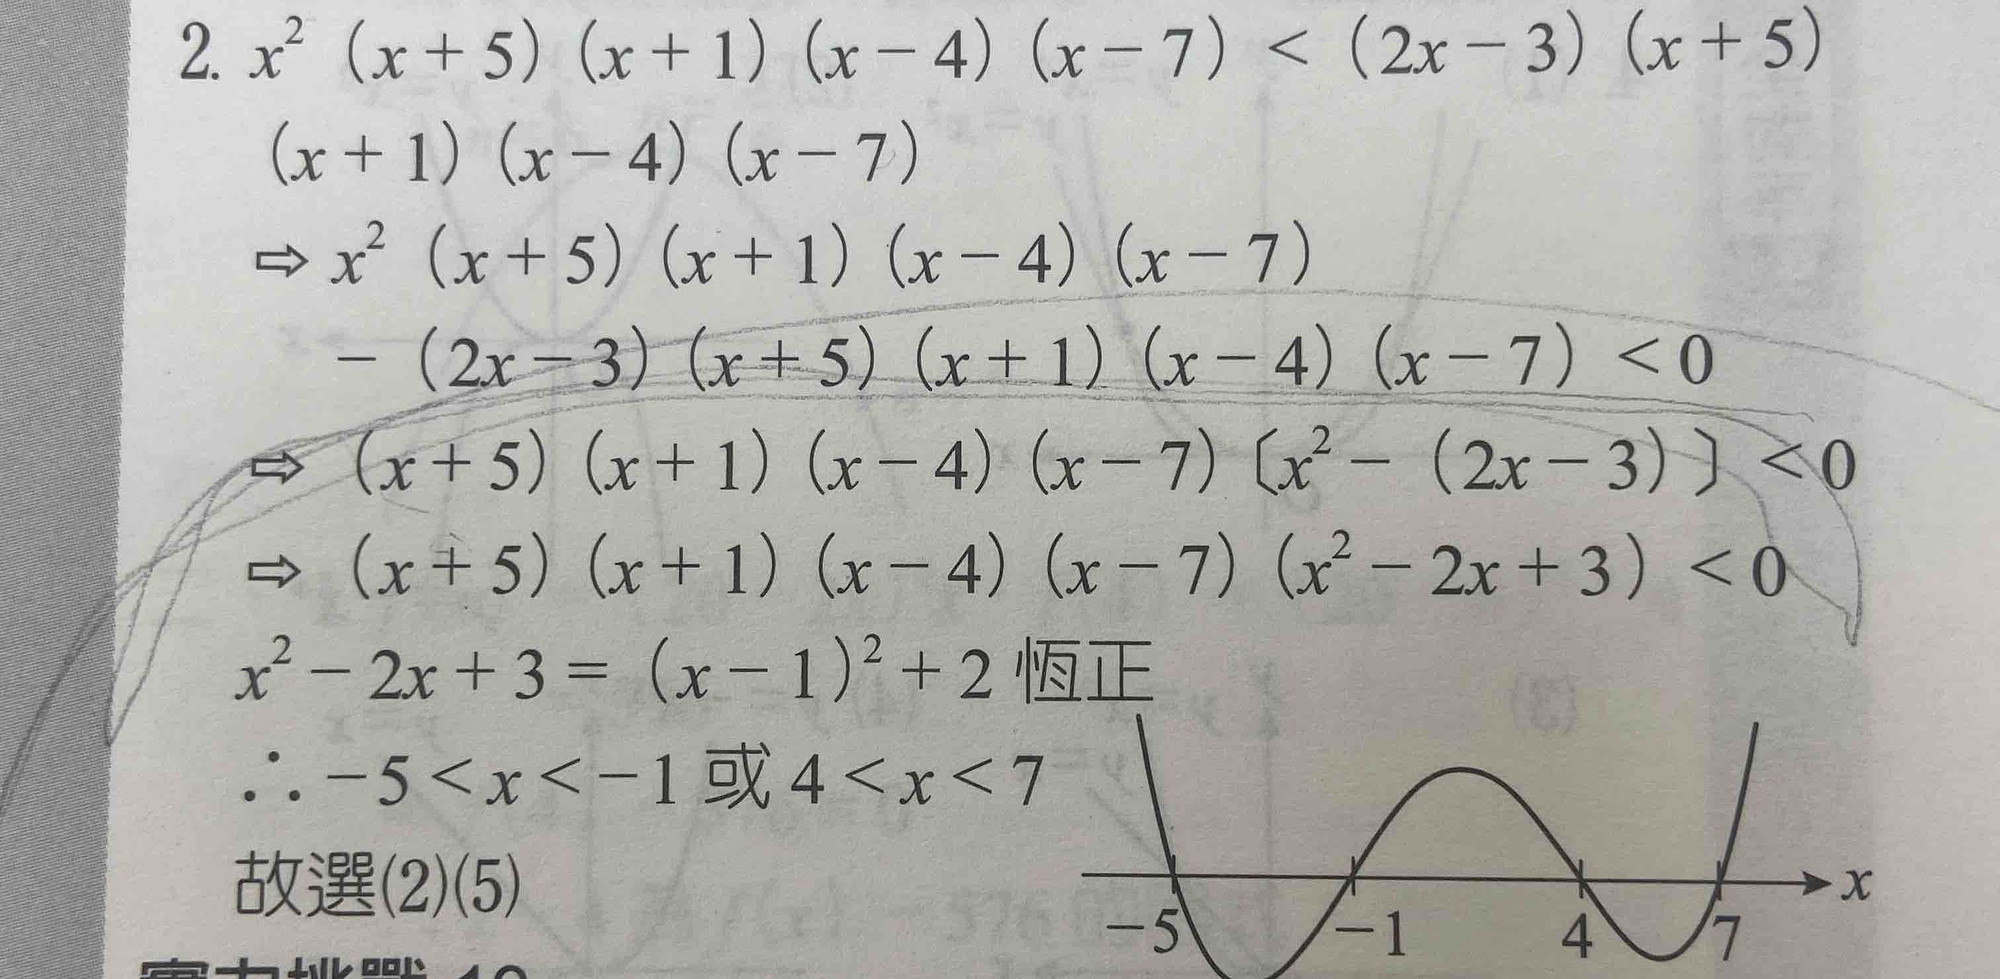 2. x² (x+5) (x+1) (x-4) (x-7) < (2x-3) (x+5)
(x+1) (x-4) (x-7)
⇨ x² (x+5) (x+1) (x-4) (x-7)
- (2x-3) (x+5) (x+1) (x-4) (x-7) <0
⇨ (x+5) (x+1) (x-4) (x-7) 〔x² - (2x-3)〕<0
⇨ (x+5) (x+1) (x-4) (x-7) (x² - 2x+3) <0
x² - 2x+3= (x-1)² +2 恆正
∴ -5<x<-1 或 4<x<7
故選(2)(5)
x
-5 -1 4 7